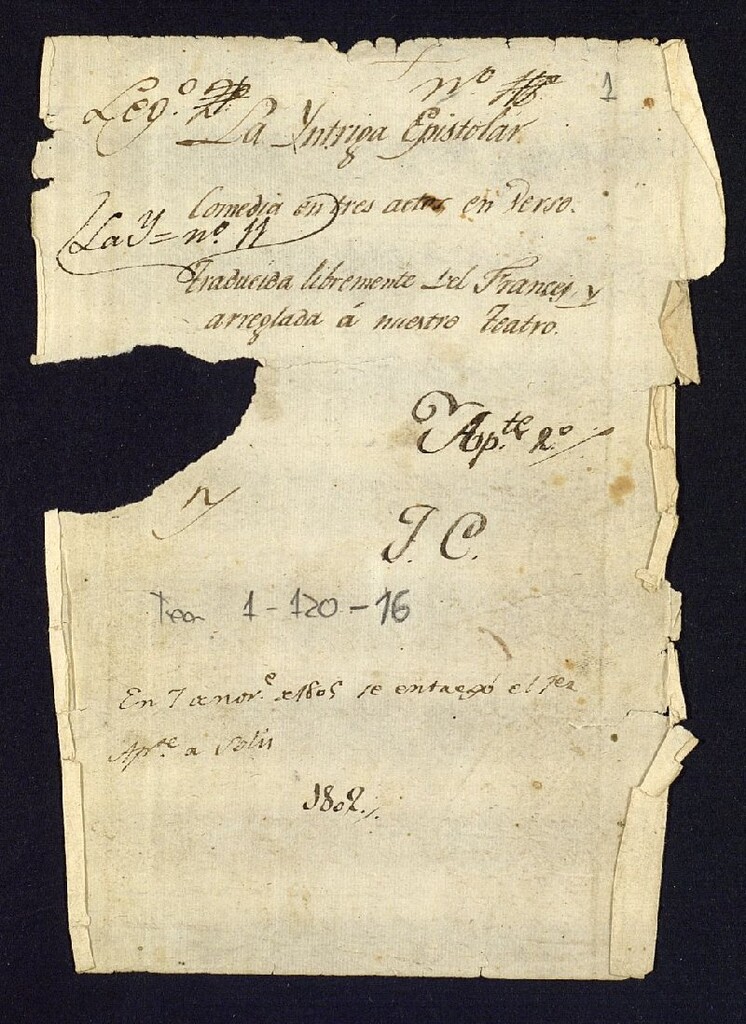 Leg.º nº 1
La Yntriga Epistolar
Comedia en tres actos en verso.
La Y = nº. 11
Traducida libremente del Frances, y
arreglada á nuestro teatro.
Ap.te 2.º
J. C.
Tea 1-120-16
En 7 de nov.e de 1805 se entregó el 1er
Ap.te a Solis
1802.